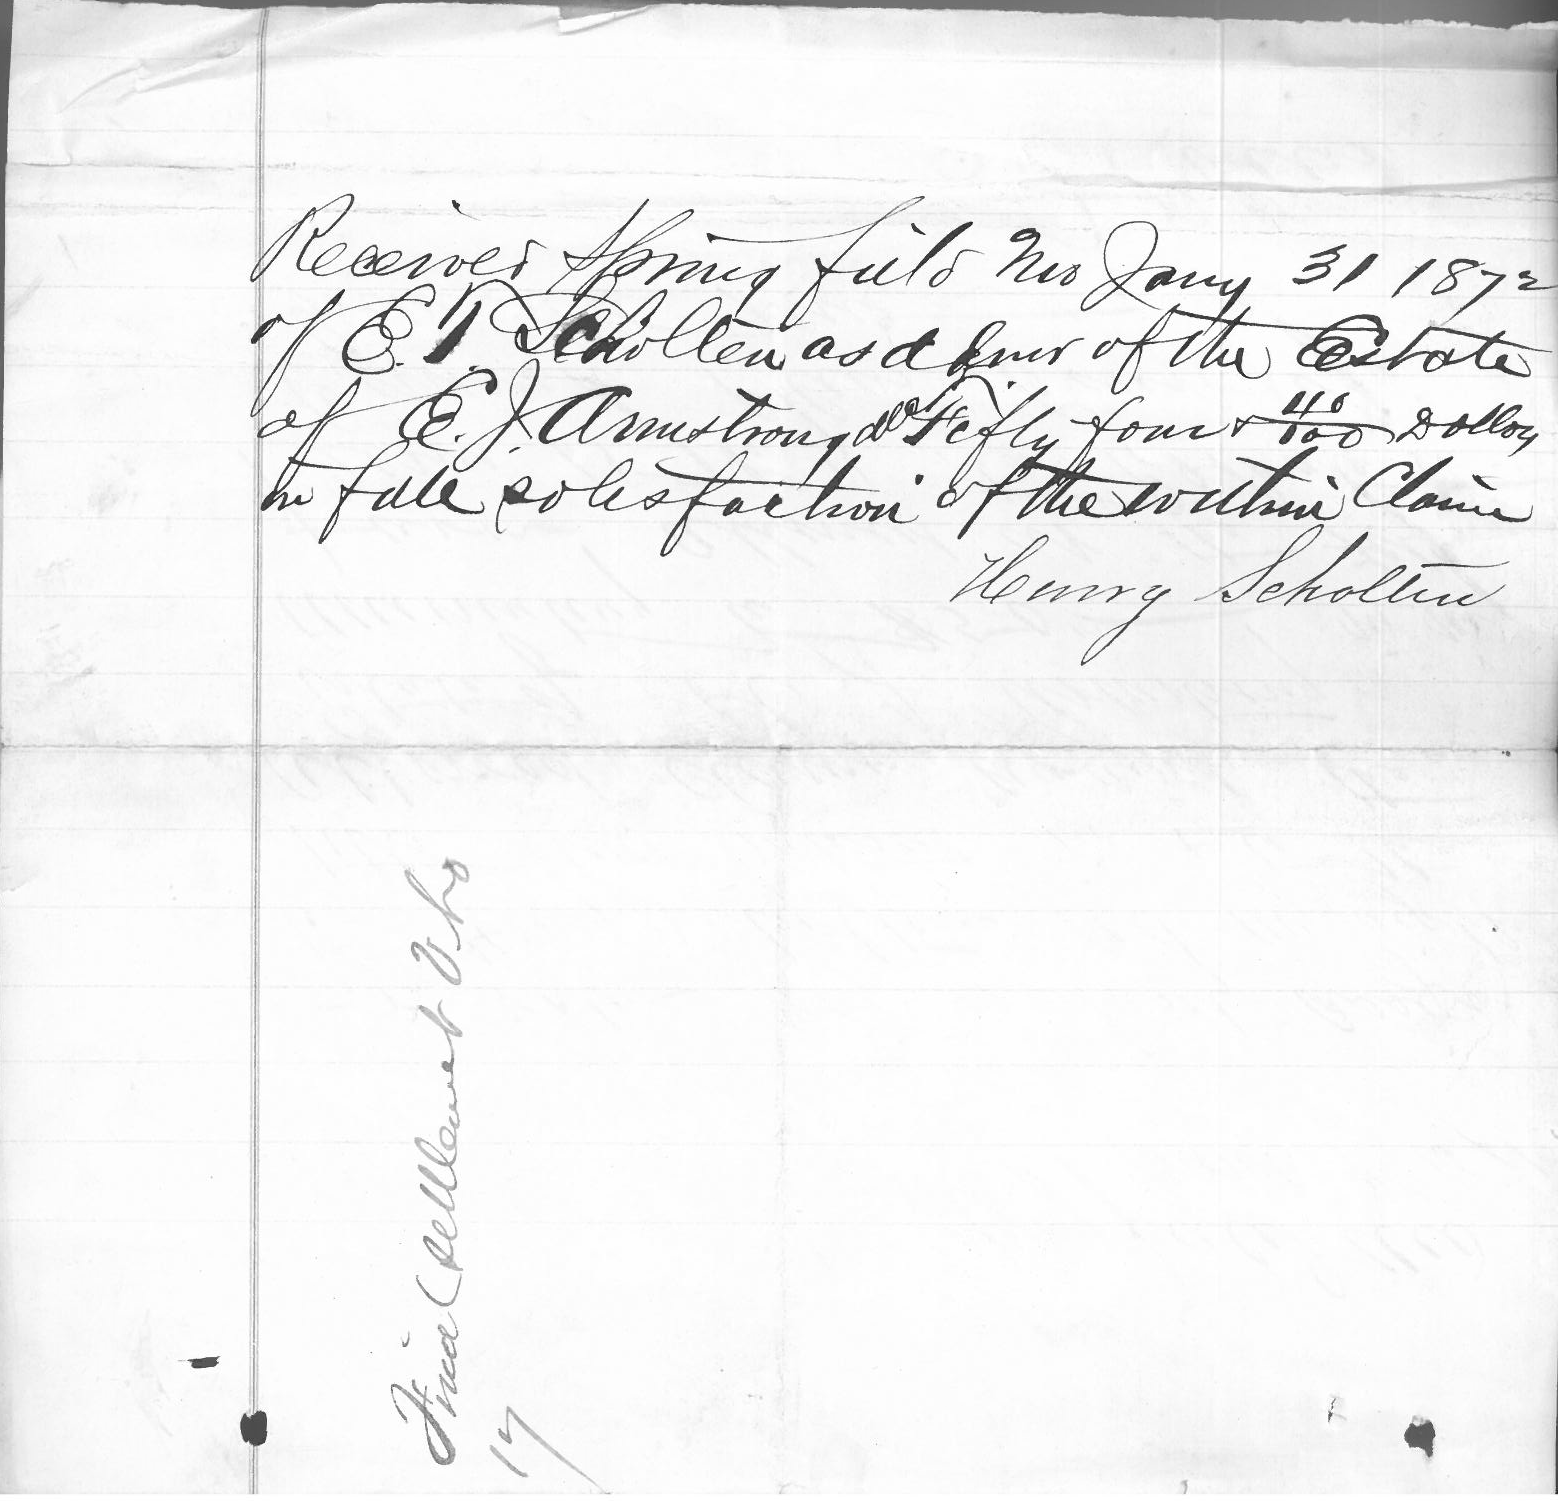 Received Spring field Mo Jany 31 1872
of E. T. Scholten as admr of the Estate
of E. J. Armstrong decd Fifty four & 40/100 Dollars
in full satisfaction of the within Claim
Henry Scholten
Final Settlement Vcho
17